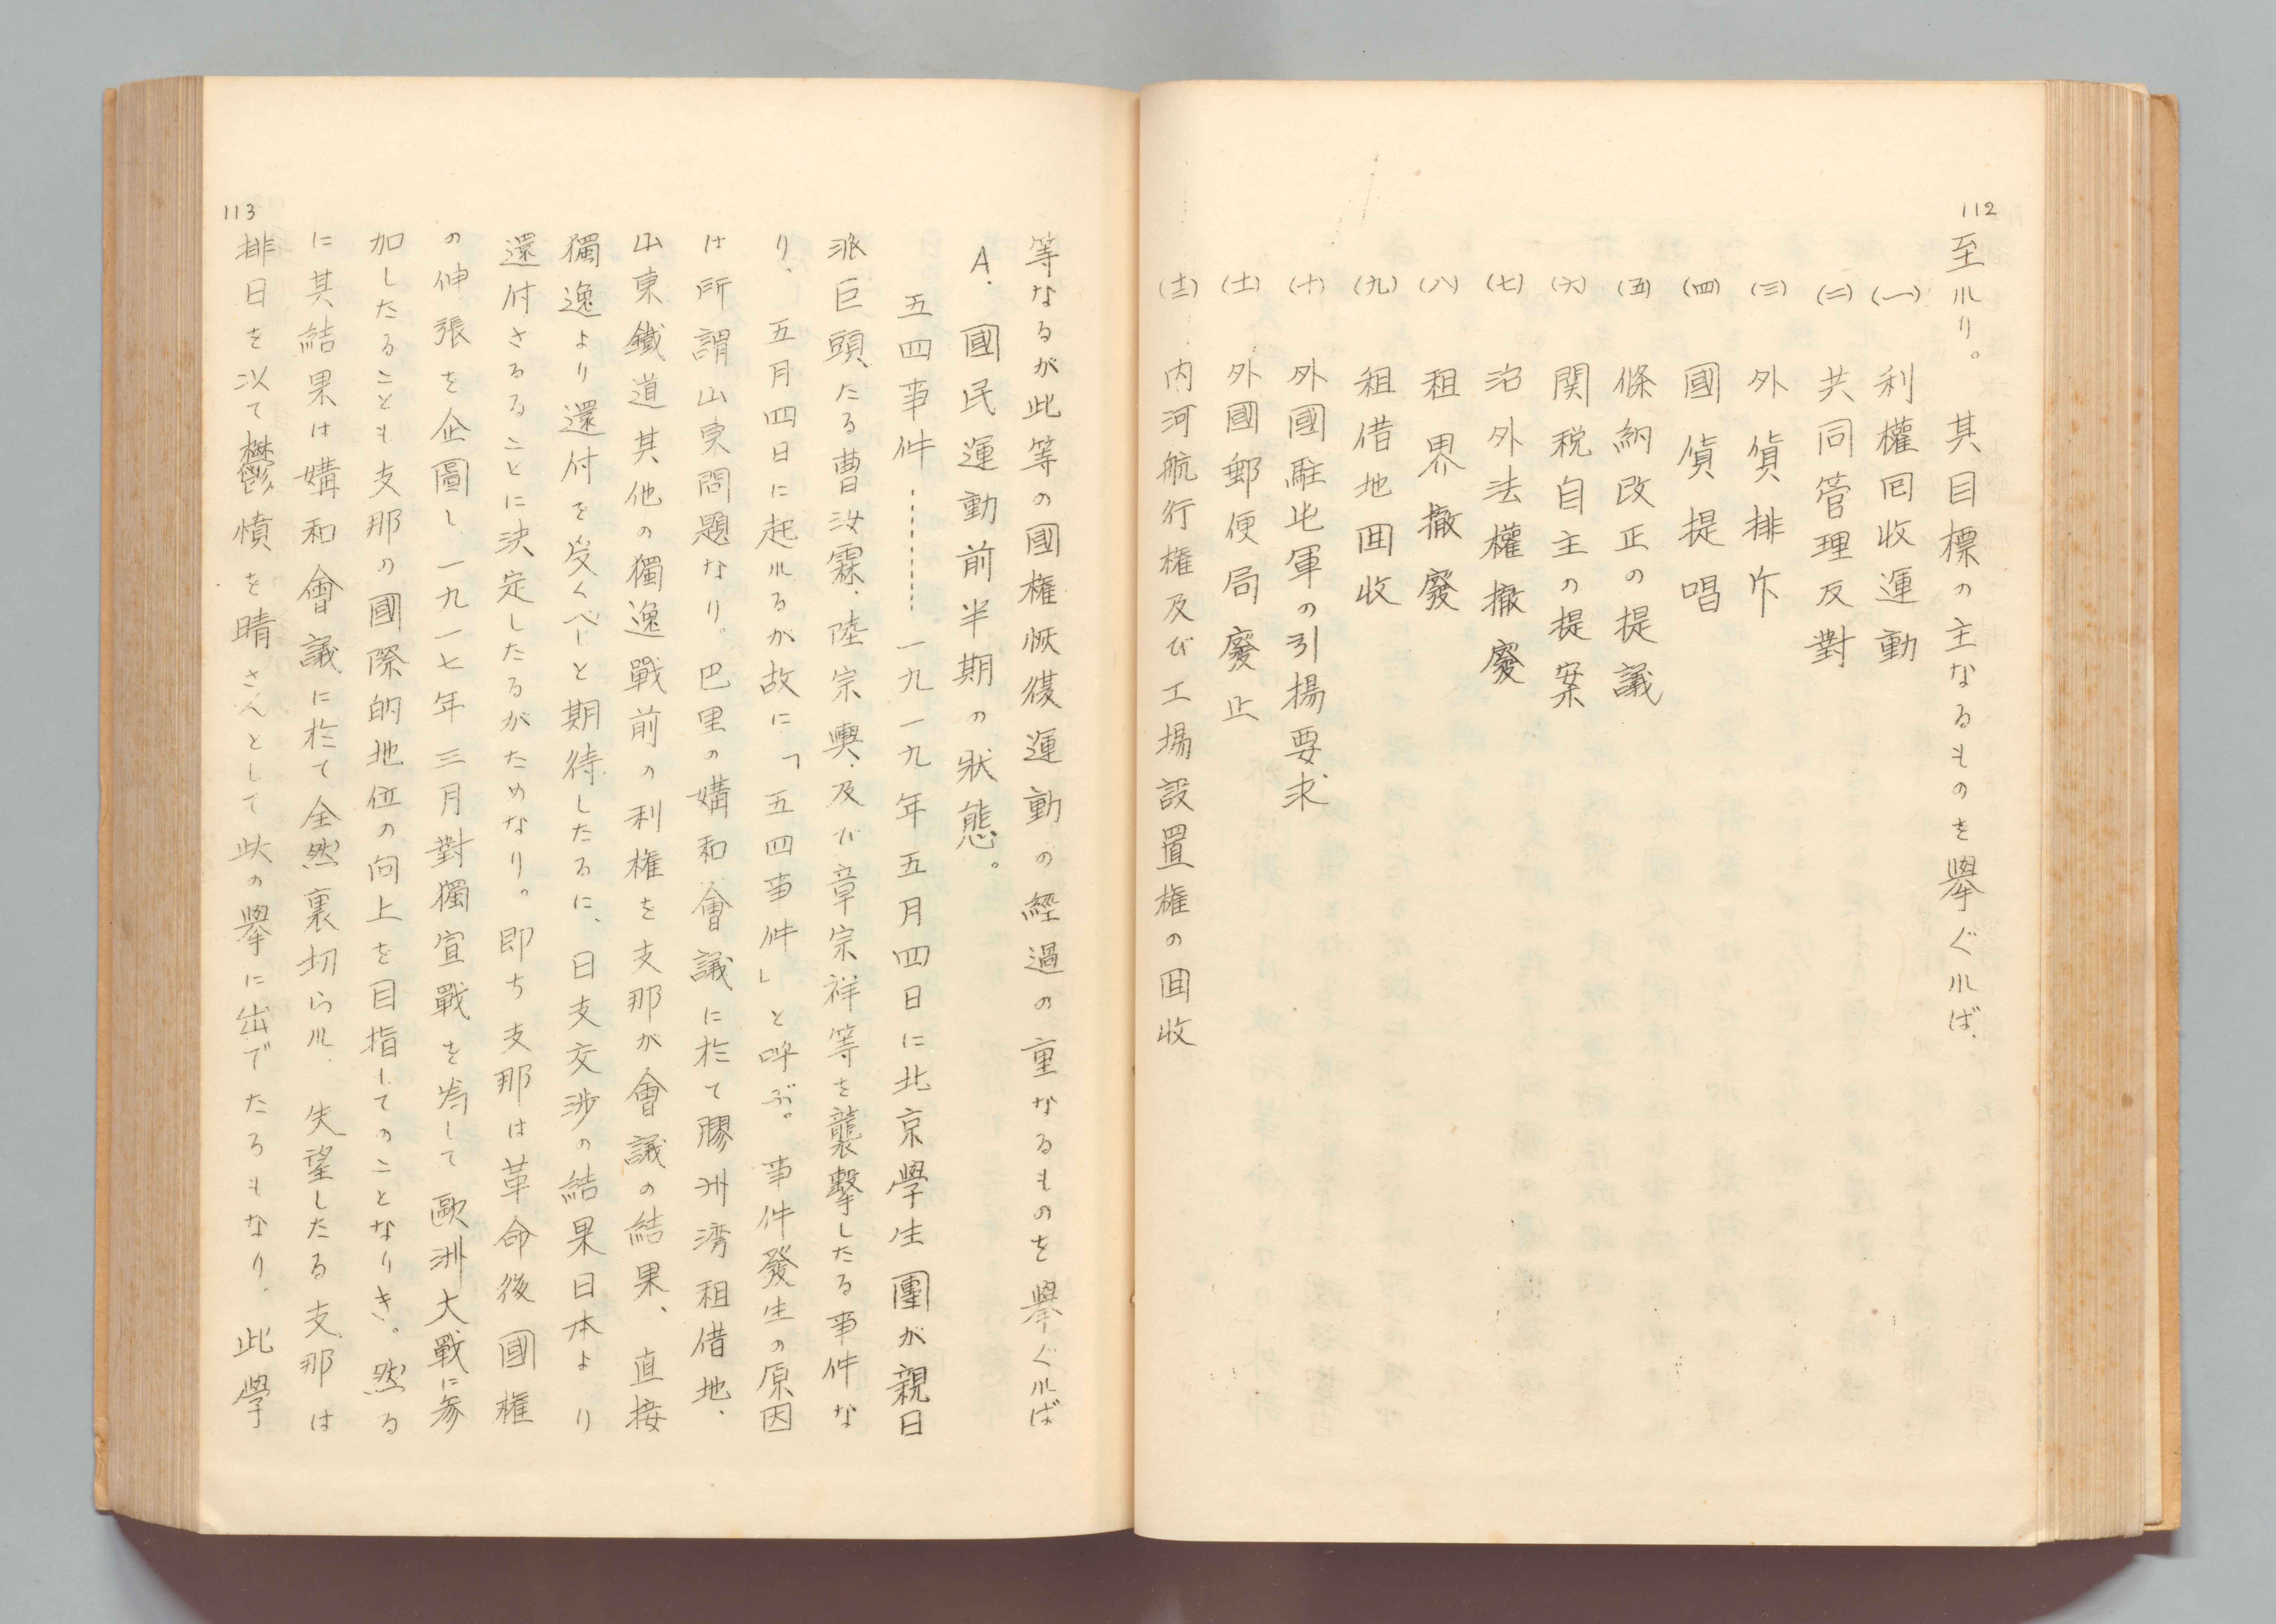 112
至ルリ。其目標の主なるものを擧ぐルば、
(一) 利權囘收運動
(二) 共同管理反對
(三) 外債排斥
(四) 國債提唱
(五) 條約改正の提議
(六) 関税自主の提案
(七) 治外法權撤廢
(八) 租界撤廢
(九) 租借地囬收
(十) 外國駐屯軍の引揚要求
(十一) 外國郵便局廢止
(十二) 内河航行権及び工場設置権の囬收
113
等なるが此等の國権恢復運動の經過の重なるものを擧ぐルば
A. 國民運動前半期の狀態。
五四事件………一九一九年五月四日に北京學生團が親日
派巨頭たる曹汝霖、陸宗輿、及び章宗祥等を襲擊したる事件な
り、五月四日に起ルるが故に「五四事件」と呼ぶ。事件發生の原因
は所謂山東問題なり。巴里の媾和會議に於て膠洲湾租借地、
山東鐵道其他の獨逸戰前の利権を支那が會議の結果、直接
獨逸より還付を受くべしと期待したるに、日支交渉の結果日本より
還付さるることに決定したるがためなり。即ち支那は革命後國権
の伸張を企圖し一九一七年三月對獨宣戰を為して歐洲大戰に参
加したることも支那の國際的地位の向上を目指してのことなりき。然る
に其結果は媾和會議に於て全然裏切らル、失望したる支那は
排日を以て鬱憤を晴さんとして此の擧に出でたるもなり。此學